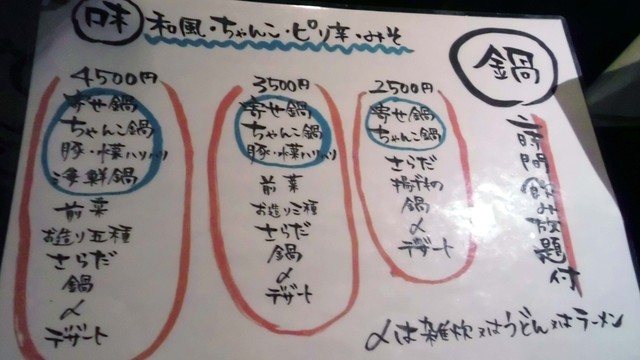 鍋
二時間飲み放題付
味 和風・ちゃんこ・ピリ辛・みそ
2500円
寄せ鍋
ちゃんこ鍋
さらだ
揚げもの
鍋
〆
デザート
3500円
寄せ鍋
ちゃんこ鍋
豚・水菜ハリハリ
前菜
お造り三種
さらだ
鍋
〆
デザート
4500円
寄せ鍋
ちゃんこ鍋
豚・水菜ハリハリ
海鮮鍋
前菜
お造り五種
さらだ
鍋
〆
デザート
〆は雑炊又はうどん又はラーメン